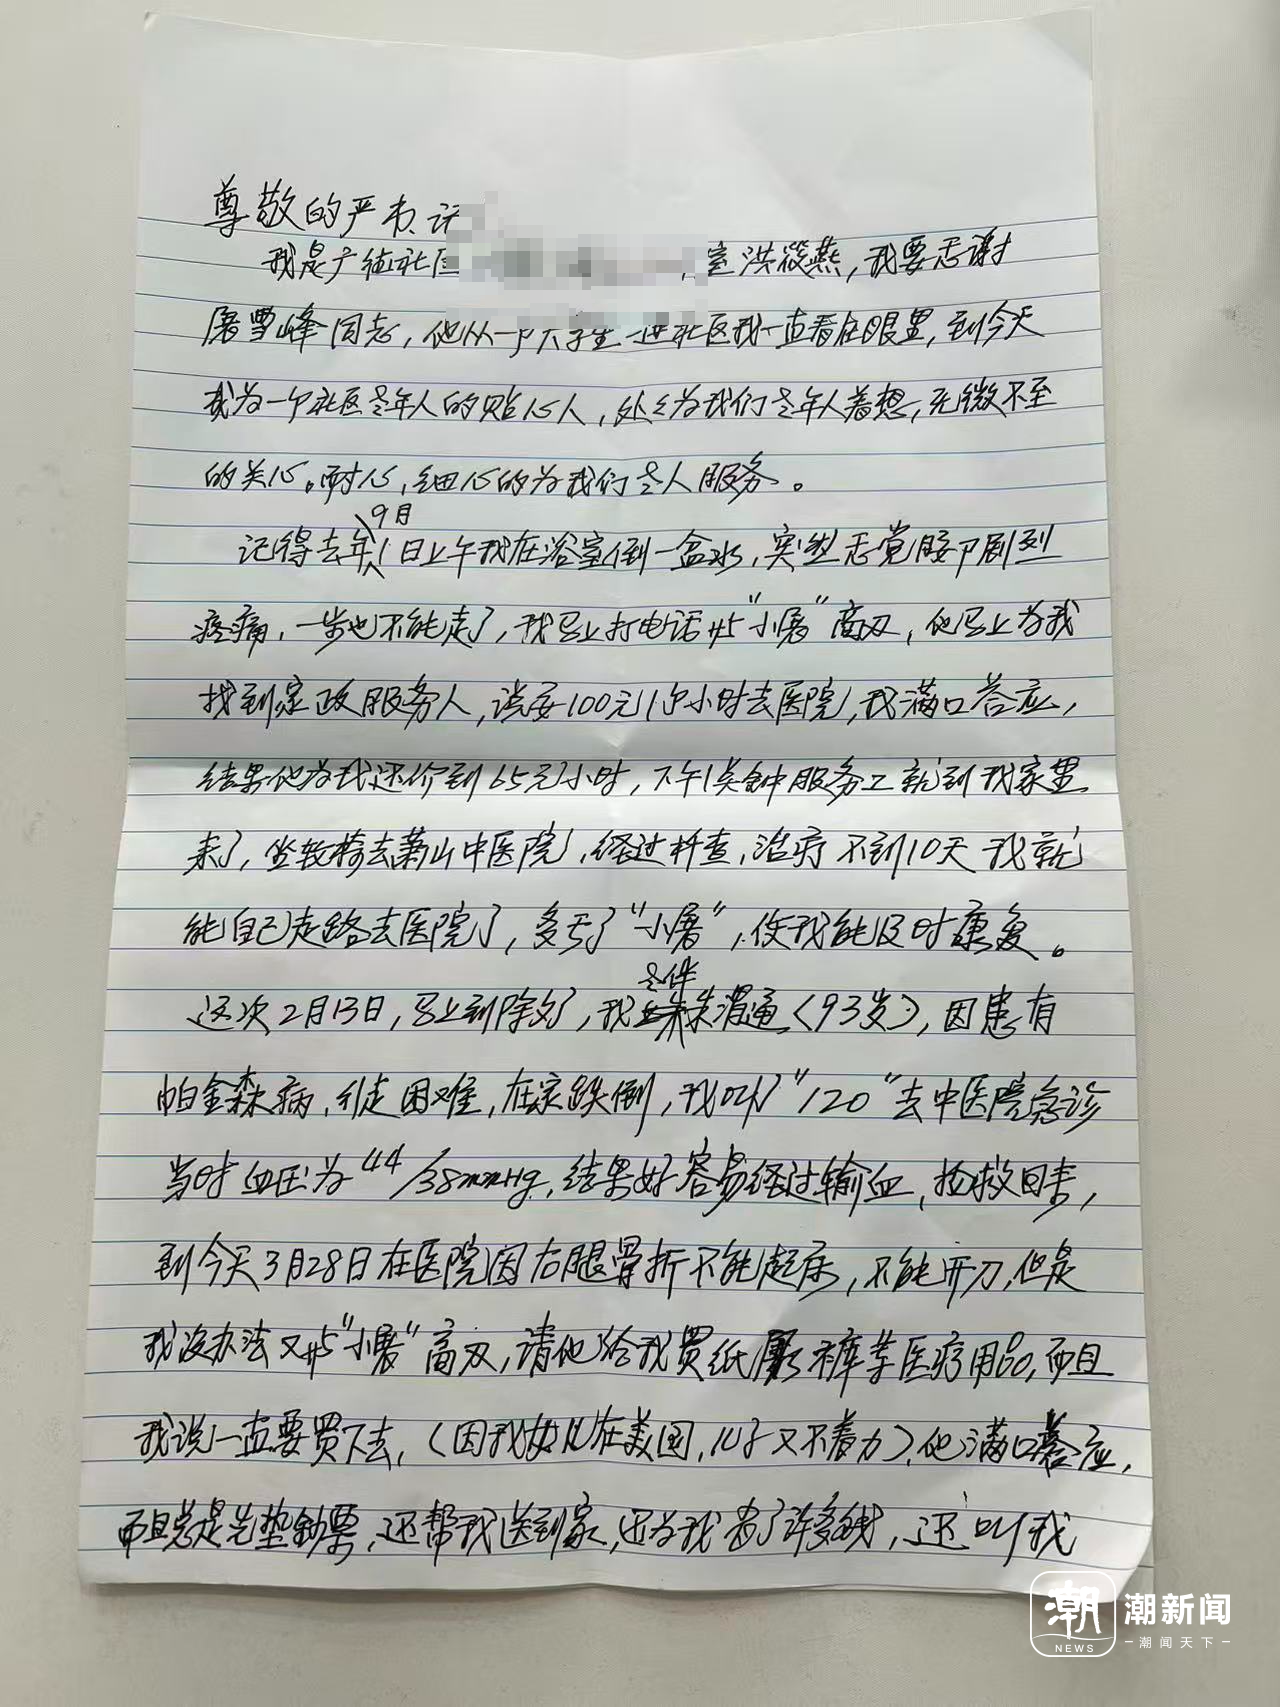 尊敬的严书记
我是广德社区 室洪筱燕，我要感谢
屠雪峰同志，他从一个大学生进社区我一直看在眼里，到今天
成为一个社区老年人的贴心人，处处为我们老年人着想，无微不至
的关心。耐心，细心的为我们老人服务。
记得去年9月1日上午我在浴室倒一盆水，突然感觉腰部剧烈
疼痛，一步也不能走了，我马上打电话与“小屠”商议，他马上为我
找到家政服务人，说要100元1个小时去医院，我满口答应，
结果他为我还价到65元1小时，下午1点钟服务工就到我家里
来了，坐轮椅去萧山中医院，经过检查，治疗不到10天我就
能自己走路去医院了，多亏了“小屠”，使我能及时康复。
这次2月13日，马上到除夕了，我老伴朱渭通（93岁），因患有
帕金森病，行走困难，在家跌倒，我叫“120”去中医院急诊
当时血压为44/38mmHg，结果好容易经过输血，抢救回来，
到今天3月28日在医院因右腿骨折不能起床，不能开刀，但是
我没办法又与“小屠”商议，请他给我买纸尿裤等医疗用品，而且
我说一直要买下去，（因我女儿在美国，儿子又不着力），他满口答应，
而且总是先垫钞票，还帮我送到家，还为我省了许多钱，还叫我
潮
NEWS
潮新闻
潮闻天下